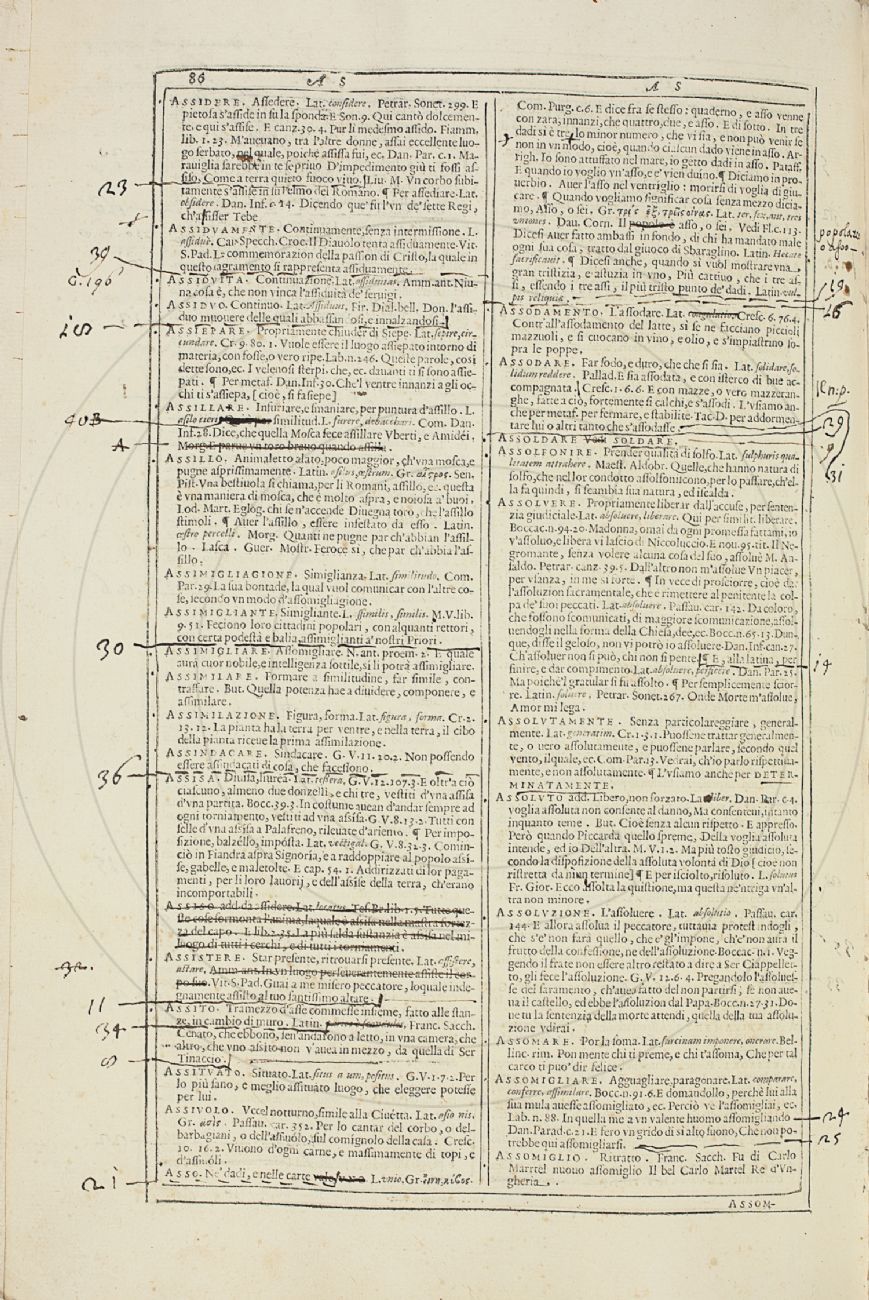 86
A S
A S
ASSIDERE. Assedere. Lat. considere. Petrar. Sonet. 299. E
pietosa s'asside in su la sponda: E Son. 9. Qui cantò dolcemen-
te, e qui s'assise. E canz. 30. 4. Pur lì medesmo assido. Fiamm.
lib. 1. 23. M'aueuano, tra l'altre donne, assai eccellente luo-
go serbato, nel quale, poichè assissa fui, ec. Dan. Par. c. 1. Ma-
rauiglia sarebbe in te se priuo D'impedimento giù ti fossi as-
siso, Come a terra quieto fuoco viuo. Liu. M. Vn corbo subi-
tamente s'assise in su l'elmo del Romano. ¶ Per assediare. Lat.
obsidere. Dan. Inf. c. 14. Dicendo que' fu l'vn de' sette Regi,
ch'assiser Tebe
ASSIDVAMENTE. Continuamente, senza intermissione. L.
assiduè. Caǝ Specch. Croc. Il Diauolo tenta assiduamente. Vit.
S. Pad. La commemorazion della passion di Cristo, la quale in
questo sagramento si rappresenta assiduamente.
ASSIDVITA. Continuazione. Lat. assiduitas. Amm. ant. Niu-
na cosa è, che non vinca l'assiduità de' seruigi.
ASSIDVO. Continuo. Lat. assiduus. Fir. Dial. bell. Don. l'assi-
duo muouere delle quali abbassandosi, e innalzandosi.
ASSIEPARE. Propriamente chiuder di Siepe. Lat. sepire, cir-
cundare. Cr. 9. 80. 1. Vuole essere il luogo assiepato intorno di
materia, con fosse, o vero ripe. Lab. n. 246. Queste parole, così
dette sono, ec. I velenosi sterpi, che, ec. dauanti ti si sono assie-
pati. ¶ Per metaf. Dan. Inf. 30. Che'l ventre innanzi agli oc-
chi ti s'assiepa, [cioè, si fa siepe]
ASSILLARE. Infuriare, e smaniare, per puntura d'assillo. L.
similitud. L. furere, debacchari. Com. Dan.
Inf. 28. Dice, che quella Mosca fece assillare Vberti, e Amidei.
Morg. E parue vn toro brauo quando assilla.
ASSILLO. Animaletto alato, poco maggior, ch'vna mosca, e
pugne asprissimamente. Latin. asilus, œstrum. Gr. οἶστρος. Sen.
Pist. Vna bestiuola si chiama, per li Romani, assillo, ec. questa
è vna maniera di mosca, che è molto aspra, e noiosa a' buoi.
Lod. Mart. Eglog. chi se n'accende Diuegna toro, che l'assillo
stimoli. ¶ Auer l'assillo, essere infestato da esso. Latin.
œstro percelli. Morg. Quanti ne pugne par ch'abbian l'assil-
lo. Lasca. Guer. Mostr. Feroce sì, che par ch'abbia l'as-
sillo.
ASSIMIGLIAGIONE. Simiglianza. Lat. similitudo. Com.
Par. 29. La sua bontade, la qual vuol comunicar con l'altre co-
se, secondo vn modo d'assomigliagione.
ASSIMIGLIANTE. Simigliante. L. assimilis, similis. M. V. lib.
9. 51. Feciono loro cittadini popolari, con alquanti rettori,
con certa podestà e balìa, assimiglianti a' nostri Priori.
ASSIMIGLIARE. Assomigliare. N. ant. proem. 2. E quale
aurà cuor nobile, e intelligenza sottile, si li potrà assimigliare.
ASSIMILARE. Formare a similitudine, far simile, con-
traffare. But. Quella potenza hae a diuidere, componere, e
assimilare.
ASSIMILAZIONE. Figura, forma. Lat. figura, forma. Cr. 2.
13. 12. La pianta ha la terra per ventre, e nella terra, il cibo
della pianta riceue la prima assimilazione.
ASSINDACARE. Sindacare. G. V. 11. 20. 2. Non possendo
essere assindacati di cosa, che facessono.
ASSISA. Diuisa, liurea. Lat. tessera. G. V. 12. 107. 3. E oltr'a ciò
ciascuno, almeno due donzelli, e chi tre, vestiti d'vna assisa
d'vna partita. Bocc. 39. 3. In costume auean d'andar sempre ad
ogni torniamento, vestiti ad vna assisa. G. V. 8. 13. 2. Tutti con
selle d'vna assisa a Palafreno, rileuate d'ariento. ¶ Per impo-
sizione, balzello, imposta. Lat. vectigal. G. V. 8. 32. 3. Comin-
ciò in Fiandra aspra Signoria, e a raddoppiare al popolo assi-
se, gabelle, e maletolte. E cap. 54. 1. Addirizzati di lor paga-
menti, per li loro lauorij, e dell'assise della terra, ch'erano
incomportabili.
ASSISO add. da assidere. Lat. locatus. Tes. Br. lib. 1. 5. Tutte que-
ste cose sormonta l'anima, la quale è assisa nella mastra fortez-
za del capo. E lib. 2. 35. La più salda sustanzia è assisa nel mi-
luogo di tutti i cerchi, e di tutti i tormenti.
ASSISTERE. Star presente, ritrouarsi presente. Lat. assistere,
astare. Amm. ant. In vn luogo perseuerantemente assiste il cor-
po suo. Vit. S. Pad. Guai a me misero peccatore, lo quale inde-
gnamente assisto al tuo santissimo altare.
ASSITO. Tramezzo d'asse commesse insieme, fatto alle stan-
ze, in cambio di muro. Latin. Franc. Sacch.
Cenato, che ebbono, sen'andarono a letto, in vna camera, che
altro, che vno assito non v'auea in mezzo, da quella di Ser
Tinaccio.
ASSITVATO. Situato. Lat. situs a um, positus. G. V. 1. 7. 2. Per
lo più sano, e meglio assituato luogo, che eleggere potesse
per lui.
ASSIVOLO. Vccel notturno, simile alla Ciuetta. Lat. asio nis,
Gr. Passau. car. 352. Per lo cantar del corbo, o del-
barbagiani, o dell'assiuolo, sul comignolo della casa. Cresc.
10. 16. 2. Viuono d'ogni carne, e massimamente di topi, e
d'assiuoli.
ASSO. Ne' dadi, e nelle carte L. vnio. Gr.
Com. Purg. c. 6. E dice fra se stesso: quaderno, e asso venne
con zara, innanzi, che quattro, due, e asso. E di sotto. In tre
dadi si è tre lo minor numero, che vi sia, e non può venir se
non in vn modo, cioè, quando ciascun dado viene in asso. Ar-
righ. Io sono attuffato nel mare, io getto dadi in asso. Pataff.
E quando io voglio vn'asso, e' e' vien duino. ¶ Diciamo in pro-
uerbio. Auer l'asso nel ventriglio: morirsi di voglia di giu-
care. ¶ Quando vogliamo significar cosa senza mezzo dicia-
mo, Asso, o sei. Gr. τρεῖς ἓξ, τρεῖς οἴνας. Lat. ter sex, aut, tres
vniones. Dau. Corn. Il asso, o sei. Vedi Fl. c. 113.
Dicesi Auer fatto ambassi in fondo, di chi ha mandato male
ogni sua cosa, tratto dal giuoco di Sbaraglino. Latin. Hecate
sacrificauit. ¶ Dicesi anche, quando si vuol mostrare vna
gran tristizia, e astuzia in vno, Più cattiuo, che i tre as-
si, essendo i tre assi, il più tristo punto de' dadi. Latin. vul-
pis reliquiæ.
ASSODAMENTO. L'assodare. Lat. Cresc. 6. 76. 4.
Contr'all'assodamento del latte, si se ne facciano piccioli
mazzuoli, e si cuocano in vino, e olio, e s'impiastrino so-
pra le poppe.
ASSODARE. Far sodo, e duro, che che si sia. Lat. solidare, so-
lidum reddere. Pallad. E sia assodata, e con isterco di bue ac-
compagnata. Cresc. 1. 6. 6. E con mazze, o vero mazzeran-
ghe, fatte a ciò, fortemente si calchi, e s'assodi. L'vsiamo an-
che per metaf. per fermare, e stabilire. Tac. D. per addormen-
tare lui o altri tanto che s'assodasse.
ASSOLDARE Vedi SOLDARE.
ASSOLFONIRE. Prender qualità di solfo. Lat. sulphuris qua-
litatem attrahere. Maest. Aldobr. Quelle, che hanno natura di
solfo, che nel lor condotto assolfoniscono, per lo passare, ch'el-
la fa quindi, si scambia sua natura, ed iscalda.
ASSOLVERE. Propriamente liberar dall'accuse, per senten-
zia giudiciale. Lat. absoluere, liberare. Qui per similit. liberare.
Boccac. n. 94. 20. Madonna, omai da ogni promessa fattami, io
v'assoluo, e libera vi lascio di Niccoluccio. E nou. 95. tit. Il Ne-
gromante, senza volere alcuna cosa del suo, assoluè M. An-
saldo. Petrar. canz. 39. 5. Dall'altro non m'assolue Vn piacer,
per vsanza, in me sì forte. ¶ In vece di prosciorre, cioè dar
l'assoluzion sacramentale, che è rimettere al penitente la col-
pa de' suoi peccati. Lat. absoluere. Passau. car. 142. Da coloro,
che fossono scomunicati, di maggiore scomunicazione, assol-
uendogli nella forma della Chiesa, dee, ec. Bocc. n. 65. 13. Dun-
que, disse il geloso, non vi potrò io assoluere. Dan. Inf. can. 27.
Ch'assoluer non si può, chi non si pente. ¶ E, alla latina, per
finire, e dar compimento. Lat. absoluere, perficere. Dan. Par. 25.
Ma poichè'l gratular si fu assolto. ¶ Per semplicemente scior-
re. Latin. soluere. Petrar. Sonet. 267. Onde Morte m'assolue,
Amor mi lega.
ASSOLVTAMENTE. Senza particolareggiare, general-
mente. Lat. generatim. Cr. 1. 3. 1. Puossene trattar generalmen-
te, o uero assolutamente, e puossene parlare, secondo quel
vento, il quale, ec. Com. Par. 13. Vedrai, ch'io parlo rispettiua-
mente, e non assolutamente. ¶ L'vsiamo anche per DETER-
MINATAMENTE.
ASSOLVTO add. Libero, non forzato. La liber. Dan. Par. c. 4.
voglia assoluta non consente al danno, Ma consentèui, intanto
inquanto teme. But. Cioè senza alcun rispetto. E appresso.
Però quando Piccarda quello spreme, Della voglia assoluta
intende, ed io Dell'altra. M. V. 1. 2. Ma più tosto giudicio, se-
condo la disposizione della assoluta volontà di Dio [cioè non
ristretta da niun termine] ¶ E per isciolto, risoluto. L. solutus
Fr. Gior. Ecco assolta la quistione, ma questa ne'ntriga vn'al-
tra non minore.
ASSOLVZIONE. L'assoluere. Lat. absolutio. Passau. car.
144. E allora assolua il peccatore, tuttauia protestandogli,
che s'e' non farà quello, che e' gl'impone, ch'e' non aurà il
frutto della confessione, ne dell'assoluzione. Boccac. n. 1. Veg-
gendo il frate non essere altro restato a dire a Ser Ciappellet-
to, gli fece l'assoluzione. G. V. 12. 6. 4. Pregandolo l'assoluesse
se del saramento, ch'auea fatto del non partirsi, se non aue-
ua il castello, ed ebbe l'assoluzion dal Papa. Bocc. n. 27. 31. Do-
ue tu la sentenzia della morte attendi, quella della tua assolu-
zione vdirai.
ASSOMARE. Por la soma. Lat. sarcinam imponere, onerare. Bel-
linc. rim. Pon mente chi ti preme, e chi t'assoma, Che per tal
carco ti puo' dir felice.
ASSOMIGLIARE. Agguagliare, paragonare. Lat. comparare,
conferre, assimilare. Bocc. n. 91. 6. E domandollo, perchè lui alla
sua mula auesse assomigliato, ec. Perciò ve l'assomigliai, ec.
Lab. n. 88. In quella me a vn valente huomo assomigliando
Dan. Parad. c. 21. E fero vn grido di sì alto suono, Che non po-
trebbe qui assomigliarsi.
ASSOMIGLIO. Ritratto. Franc. Sacch. Fu di Carlo
Marrtel nuouo assomiglio Il bel Carlo Martel Re d'Vn-
gheria.
ASSOM-
23
39
G. 196
108
403
A
30
36
32
11
34
8
21
popolare
19
16
39
31
14
24
25